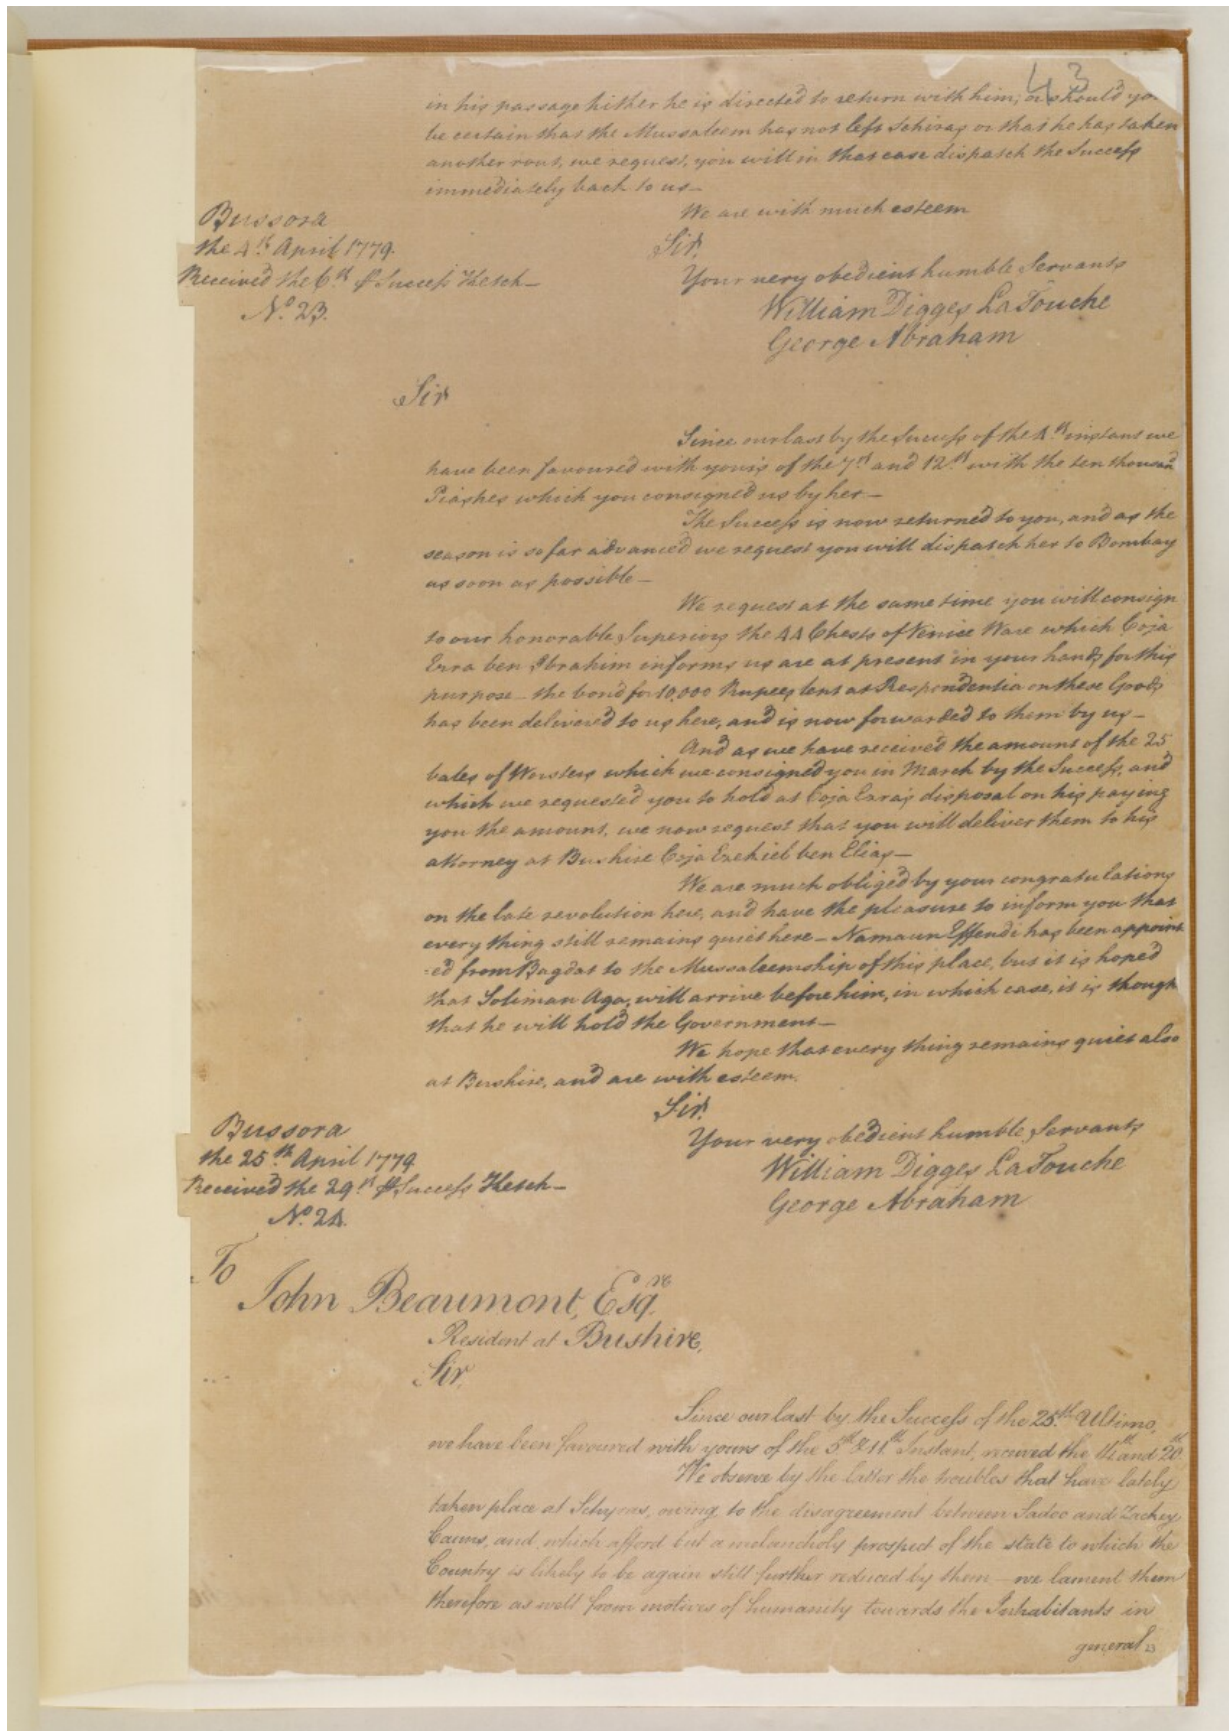 43
in his passage hither he is directed to return with him; or should yo
be certain that the Mussaleem has not left Schiras or that he has taken
another rout, we request, you will in that case dispatch the Success
immediately back to us—
We are with much esteem
Bussora
the 4th April 1779.
Sir,
Received the 6th ⅌ Success Ketch—
Your very obedient humble Servants
No. 23.
William Digges LaTouche
George Abraham
Sir
Since our last by the Success of the 4th instant we
have been favoured with yours of the 7th and 12th with the ten thousand
Piashes which you consigned us by her—
The Success is now returned to you, and as the
season is so far advanced we request you will dispatch her to Bombay
as soon as possible—
We request at the same time you will consign
to our honorable Superiors the 44 Chests of Venice Ware which Coja
Ezra ben Ibrahim informs us are at present in your hands for this
purpose—the bond for 10,000 Rupees lent at Respondentia on these Goods
has been delivered to us here, and is now forwarded to them by us—
And as we have received the amount of the 25
bales of which we consigned you in March by the Success, and
which we requested you to hold at Coja Ezra's disposal on his paying
you the amount, we now request that you will deliver them to his
attorney at Bushire Coja Ezekiel ben Elias—
We are much obliged by your congratulations
on the late revolution here, and have the pleasure to inform you that
every thing still remains quiet here—Namaun Effendi has been appoint
-ed from Bagdat to the Mussaleemship of this place, but it is hoped
that Soliman Aga, will arrive before him, in which case, it is though
that he will hold the Government—
We hope that every thing remains quiet also
at Bushire, and are with esteem.
Sir.
Bussora
Your very obedient humble Servants
the 25th April 1779
William Digges LaTouche
Received the 29th ⅌ Success Ketch—
George Abraham
No. 24.
To
John Beaumont, Esqre.
Resident at Bushire,
Sir,
Since our last by the Success of the 25th Ultimo,
we have been favoured with yours of the 5th & 11th Instant, received the and 20th
We observe by the latter the troubles that have lately
taken place at Schyras, owing to the disagreement between Sadoo and Zackey
Cauns, and which afford but a melancholy prospect of the state to which the
Country is likely to be again still further reduced by them—we lament them
therefore as well from motives of humanity towards the Inhabitants in
general